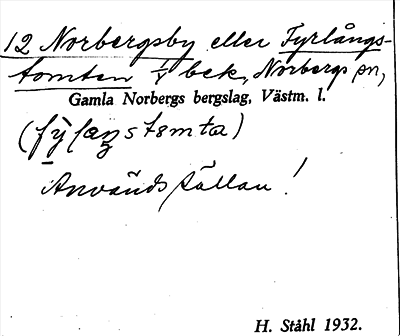 12 Norbergsby eller Fyrlångs-
tomten 1/8 bek., Norbergs sn,
Gamla Norbergs bergslag, Västm. l.
(fy̱laŋstɷmta)
Används sällan!
H. Ståhl 1932.